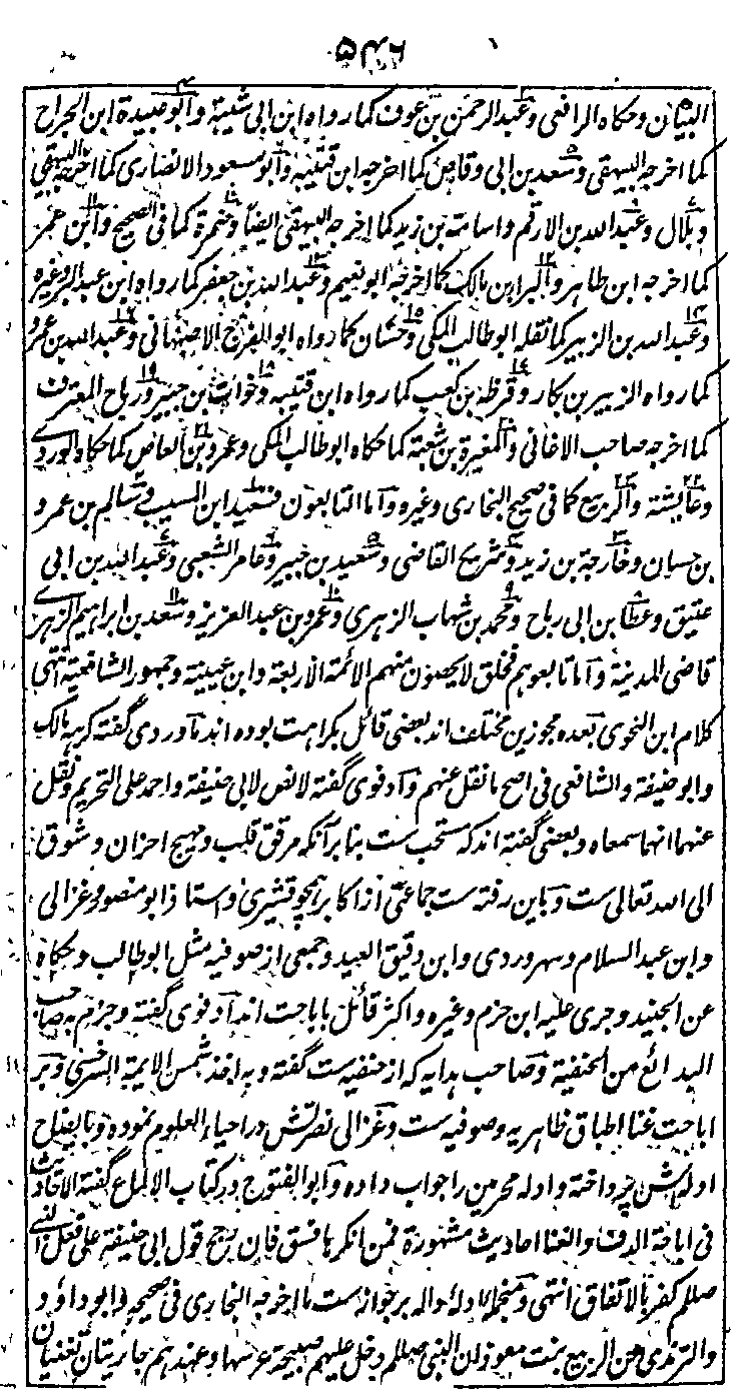 ۶۴۵
البیان وحکاه الرافعی وعبد الرحمن بن عوف کما رواه ابن ابی شیبة وابو عبیدة ابن الجراح
کما اخرجه البیهقی وسعد بن ابی وقاص کما اخرجه ابن قتیبه وابو مسعود الانصاری کما اخرجه البیهقی
وبلال وعبد الله بن الارقم واسامة بن زید کما اخرجه البیهقی ایضاً وحمزة کما فی الصحیح وابن عمر
کما اخرجه ابن طاهر والبراء بن مالک کما اخرجه ابو نعیم وعبد الله بن جعفر کما رواه ابن عبد البر وغیره
وعبد الله بن الزبیر کما نقله ابو طالب المکی وحسان کما رواه ابو الفرج الاصبهانی وعبد الله بن عمرو
کما رواه الزبیر بن بکار وقرظة بن کعب کما رواه ابن قتیبه وخوات بن جبیر ورباح المعترف
کما اخرجه صاحب الاغانی والمغیرة بن شعبة کما حکاه ابو طالب المکی وعمرو بن العاص کما حکاه الماوردی
وعایشة والربیع کما فی صحیح البخاری وغیره واما التابعون فسعید ابن المسیب وسالم بن عمرو
بن حسان وخارجة بن زید وشریح القاضی وسعید بن جبیر وعامر الشعبی وعبد الله بن ابی
عتیق وعطا بن ابی رباح ومحمد بن شهاب الزهری وعمر بن عبد العزیز وسعد بن ابراهیم الزهری
قاضی المدینة واما تابعوهم فخلق لا یحصون منهم الائمة الاربعة وابن عیینة وجمهور الشافعیة انتهی
کلام ابن النحوی بعده مجوزین مختلف اند بعضی قائل بکراهت بوده اند ماوردی گفته کرهه مالک
وابو حنیفة والشافعی فی اصح ما نقل عنهم وادفوی گفته لا نص لابی حنیفة واحمد علی التحریم ونقل
عنهما انهما سمعاه وبعضی گفته اند که مستحب ست بنا بر آنکه مرقق قلب ومهیج احزان وشوق
الی الله تعالی ست وباین رفته ست جماعتی از اکابر همچو قشیری واستاذ ابو منصور وغزالی
وابن عبد السلام وسهروردی وابن دقیق العید وجمعی از صوفیه مثل ابو طالب وحکاه
عن الجنید وجری علیه ابن حزم وغیره واکثر قائل باباحت اند ادفوی گفته وجزم به صاحب
البدائع من الحنفیة وصاحب هدایه که از حنفیه ست گفته وبه اخذ شمس الایمة السرخسی وبر
اباحت غنا اطباق ظاهریه وصوفیه ست وغزالی نصرتش در احیاء العلوم نموده وبایضاح
ادله اش پرداخته وادله محرمین را جواب داده وابو الفتوح در کتاب الالماع گفته الاحادیث
فی اباحة الدف والغنا احادیث مشهورة فمن انکرها فسق فان رجح قول ابی حنیفة علی فعل النبی
صللم کفر بالاتفاق انتهی ومنجمله ادله داله بر جواز ست ما اخرجه البخاری فی صحیحه وابو داود
والترمذی عن الربیع بنت معوذ ان النبی صللم دخل علیهم صبیحة عرسها وعندهم جاریتان تغنیان